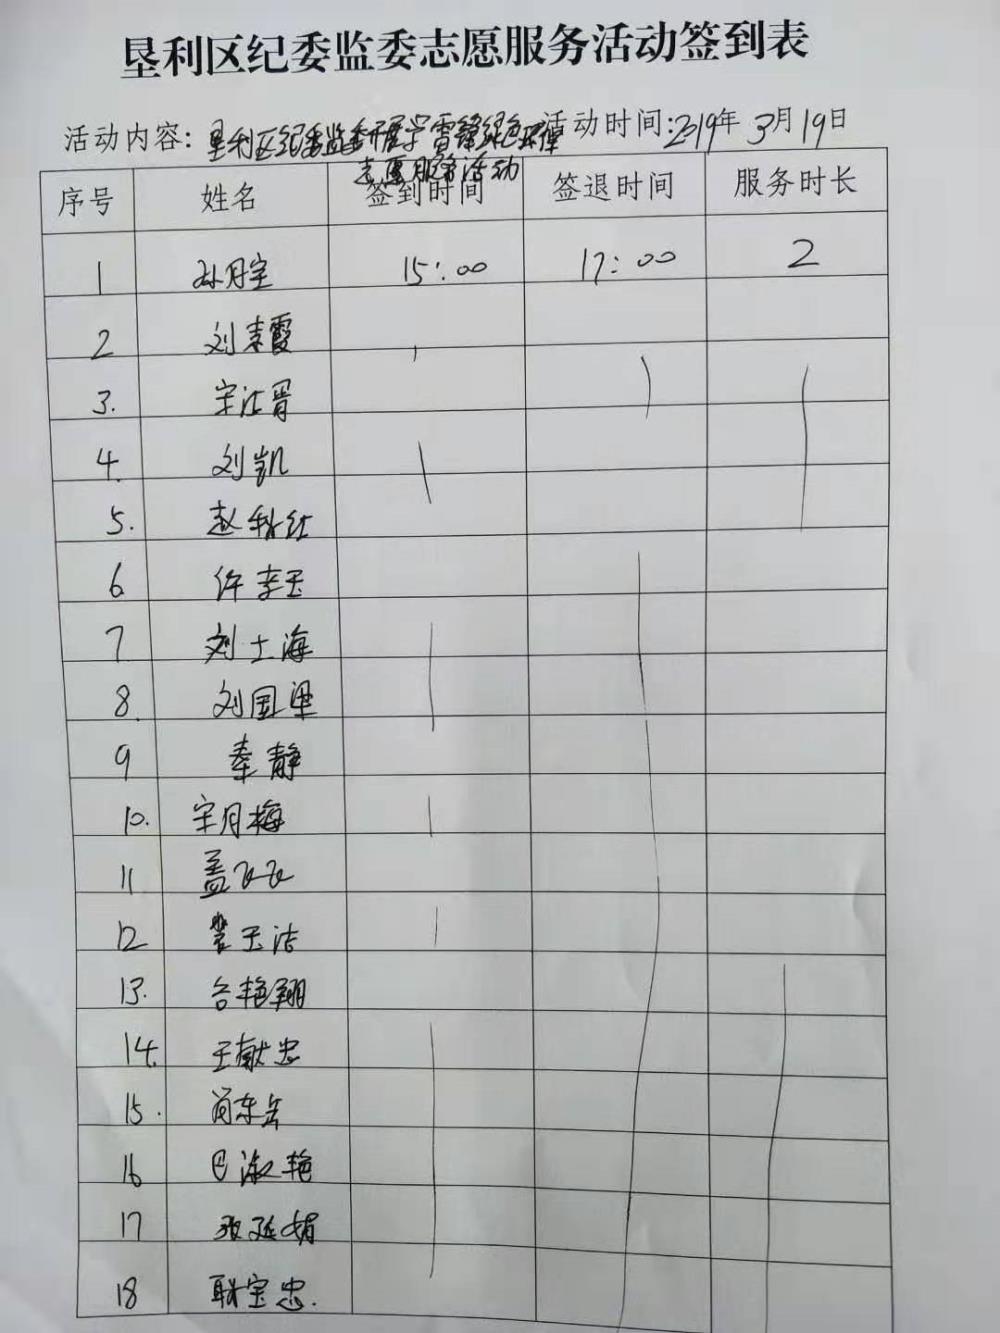 垦利区纪委监委志愿服务活动签到表
活动内容: 垦利区纪委监委开展学雷锋绿色环保 活动时间:2019年3月19日
志愿服务活动
序号 姓名 签到时间 签退时间 服务时长
1 孙月宝 15:00 17:00 2
2 刘素霞
3. 宋江胥
4. 刘凯
5. 赵
6 许李玉
7 刘士海
8. 刘国梁
9 秦静
10. 宋月梅
11 盖飞飞
12 玉洁
13. 台艳翔
14. 王献忠
15. 尚东岳
16 巴淑艳
17 张延娟
18 耿宝忠.